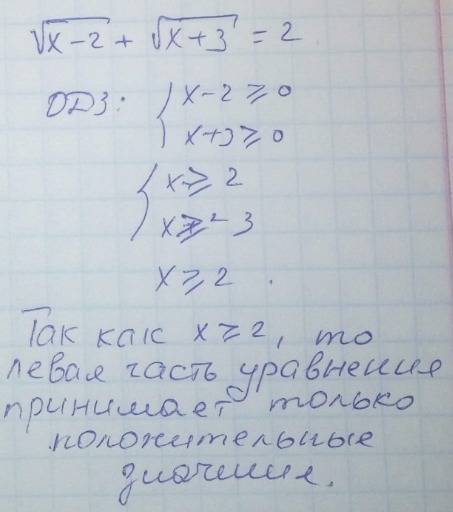 √x-2 + √x+3 = 2
ОДЗ: { x-2 ≥ 0
x+3 ≥ 0
{ x ≥ 2
x ≥ -3
x ≥ 2 .
Так как x ≥ 2, то
левая часть уравнения
принимает только
положительные
значения.